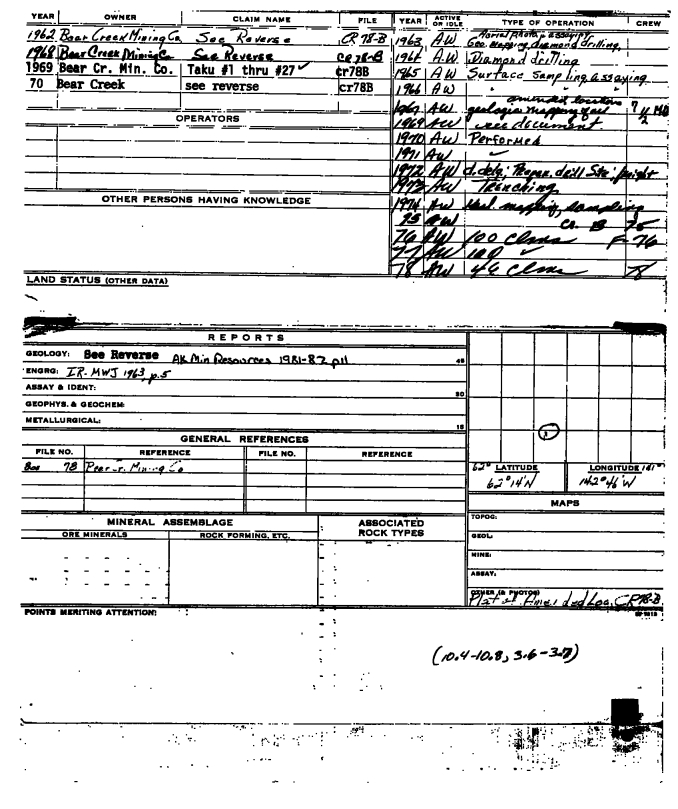 YEAR OWNER CLAIM NAME FILE YEAR ACTIVE OR IDLE TYPE OF OPERATION CREW
1962 Bear Creek Mining Co. See Reverse CR 78-B
1968 Bear Creek Mining Co. See Reverse CR 78-B
1969 Bear Cr. Min. Co. Taku #1 thru #27 ✓ cr78B
70 Bear Creek see reverse cr78B
OPERATORS
OTHER PERSONS HAVING KNOWLEDGE
1963 AW Aerial photo & assaying Geo. Mapping, diamond drilling,
1964 AW Diamond drilling
1965 AW Surface sampling & assaying
1966 AW " "
amended locations
1967 AW geologic mapping 7
1969 AW see document 2
1970 AW Performed
1971 AW ✓
1972 AW d. drlg; Prepar. drill Site; freight
1973 AW Trenching
1974 AW mapping, sampling
75 AW Cr. B 75
76 AW 100 Clms F-76
77 AW 100 ✓
78 AW 46 Clms 78
LAND STATUS (OTHER DATA)
REPORTS
GEOLOGY: See Reverse AK Min Resources 1981-82 p11 45
ENGRG: IR-MWJ 1963, p.5
ASSAY & IDENT: 30
GEOPHYS. & GEOCHEM:
METALLURGICAL: 15
GENERAL REFERENCES
FILE NO. REFERENCE FILE NO. REFERENCE
78 Mining Co
62° LATITUDE LONGITUDE 141°
62° 14' N 142° 46' W
MAPS
TOPOG:
GEOL:
MINE:
ASSAY:
OTHER (& PHOTOS)
Plat of Amended Loc, CR78-B
MINERAL ASSEMBLAGE
ORE MINERALS ROCK FORMING, ETC.
ASSOCIATED ROCK TYPES
POINTS MERITING ATTENTION:
(10.4-10.8, 3.6-3.7)